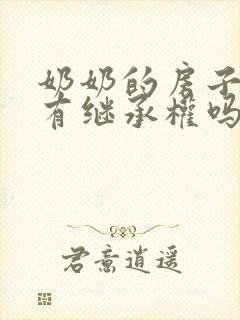 奶奶的房子
有继承權吗
君意逍遥